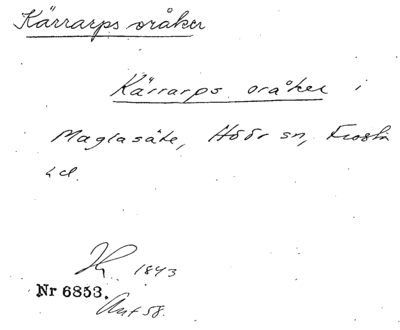 Kärrarps oråker
Kärrarps oråker i
Maglasäte, Höör sn, Frosta
hd.
1843
Nr 6853.
Avt 58.